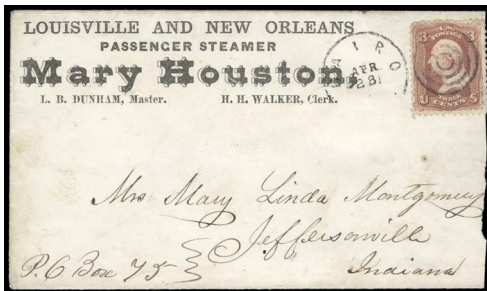 LOUISVILLE AND NEW ORLEANS
PASSENGER STEAMER
Mary Houston,
L. B. DUNHAM, Master. H. H. WALKER, Clerk.
CAIRO
APR
28
3 U.S. POSTAGE 3
U THREE CENTS S
Mrs Mary Linda Montgomery
Jeffersonville
P. O Box 75 Indiana